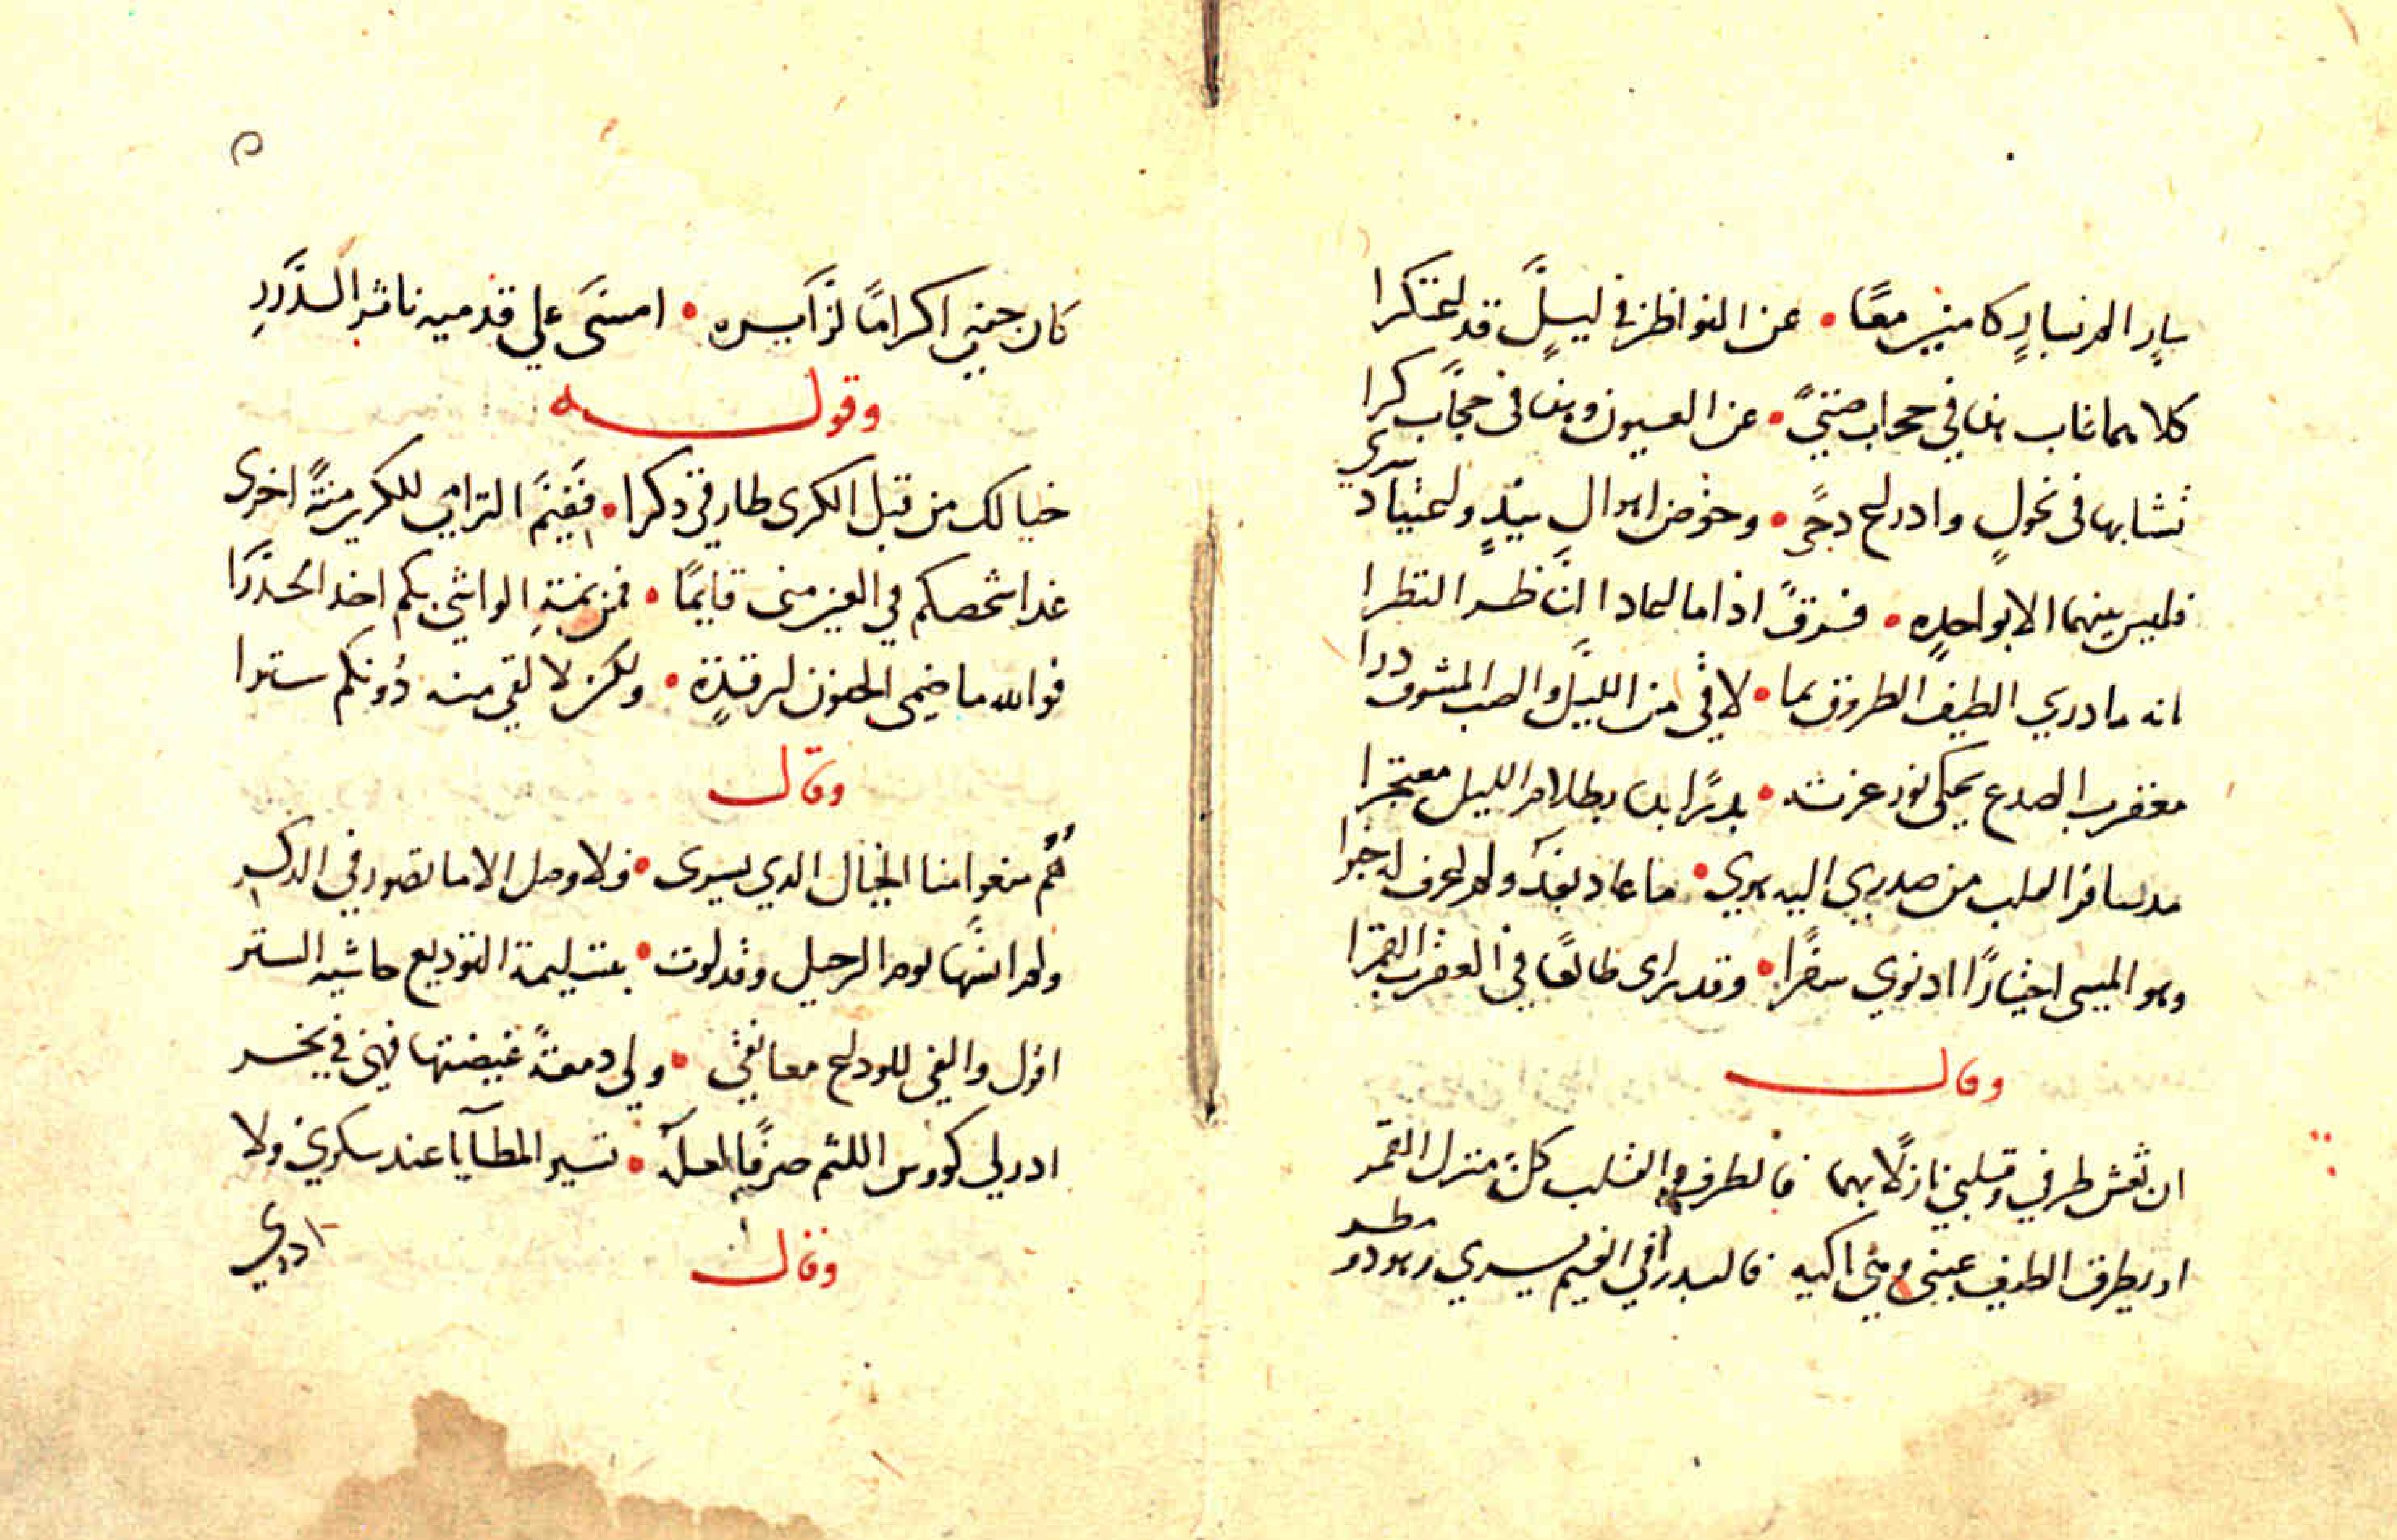 باد الم بباد كامنين معًا • عن النواظر في ليلٍ قد اعتكرا
كلاهما غاب هذا في حجاب ضنىً • عن العيون وهذا في حجاب كرا
تشابها في نحولٍ وادراع دجىً • وخوض اهوال بيدٍ واعتياد سرى
فليس بينهما الا بواحدٍه • فرقً اذا ما اعاد الناظر النظرا
انه ما درى الطيف الطروق بما • لاقى من الليل والصب المشوق درا
معقرب الصدع يحكى نور غرته • بدرًا بدا بظلام الليل معتجرا
مد سافر القلب من صدري اليه هوي • ما عاد بعد ولم اعرف له خبرا
وهو المسى اختيارًا اد نوي سفرًا • وقد راى طالعًا في العقرب القمرا
وقال
ان تغش طرفي وقلبي نازلًا بهما فالطرف والقلب كل منزل القمر
او يطرق الطيف عيني وهي باكيه فالبدر في الغيم يسري وهو ذو مطر
كان جفني اكرامًا لزايره • امسى على قدميه ناثر الدرر
وقوله
خيالك من قبل الكرى طارقي ذكرا • ففيم التزامي للكرى منةً اخرى
غدا شخصكم في العين منى قايمًا • فمن نمة الواشي بكم اخذ الحذرا
فوالله ما ضمى الجفون لرقدةٍ • ولكن لالقى منه دونكم سترا
وقال
هم منعوا منا الخيال الذي يسرى • فلا وصل الا ما تصور في الفكر
ولم انسها يوم الرحيل وقد لوت • بتسليمة التوديع حاشيه الستر
اقول والفى للوداع معانقي • ولى دمعةً غيضتها فهي في نحر
ادر لي كووس اللثم صرفًا لعله • تسير المطايا عند سكري ولا ادري
وقال